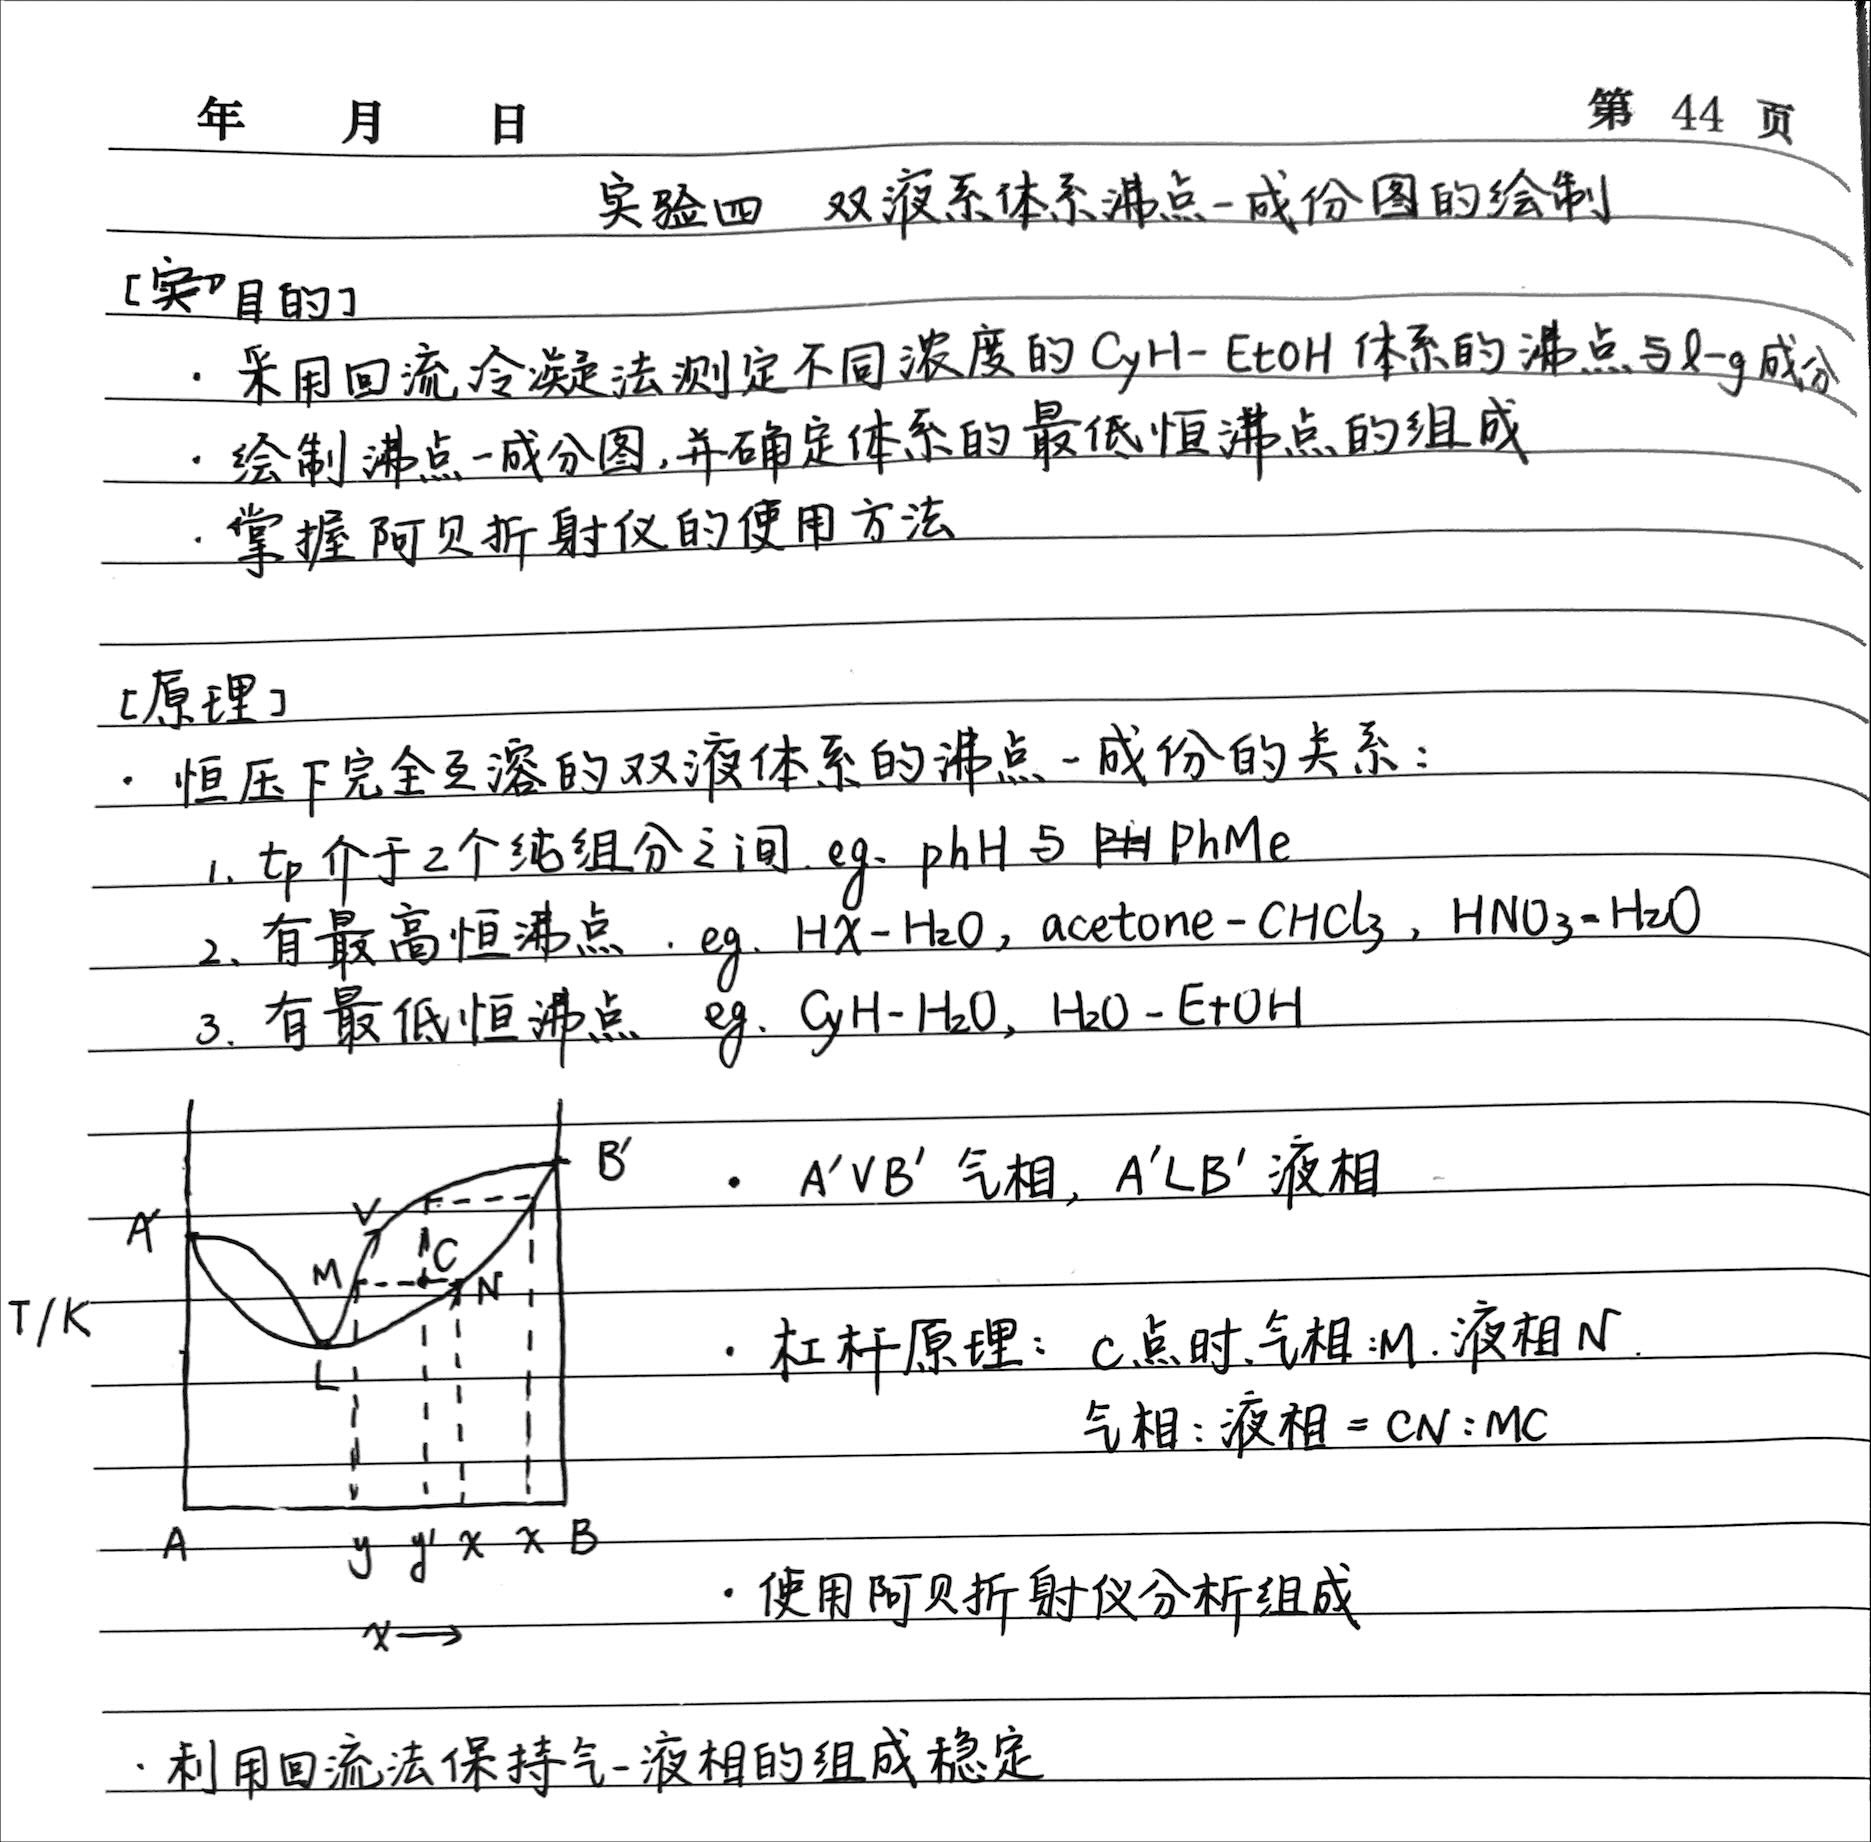 年 月 日 第 44 页
实验四 双液系体系沸点-成份图的绘制
[实 目的]
· 采用回流冷凝法测定不同浓度的 CyH-EtOH 体系的沸点与l-g成分
· 绘制沸点-成分图,并确定体系的最低恒沸点的组成
· 掌握阿贝折射仪的使用方法
[原理]
· 恒压下完全互溶的双液体系的沸点-成份的关系:
1. tp 介于2个纯组分之间. eg. phH 与 PhMe
2. 有最高恒沸点. eg. HX-H2O, acetone-CHCl3, HNO3-H2O
3. 有最低恒沸点 eg. CyH-H2O, H2O-EtOH
B'
· A'VB' 气相, A'LB' 液相
A'
V
C
M
N
T/K
· 杠杆原理: C点时、气相:M. 液相N.
L
气相:液相 = CN:MC
A y y' x x B
· 使用阿贝折射仪分析组成
x→
· 利用回流法保持气-液相的组成稳定